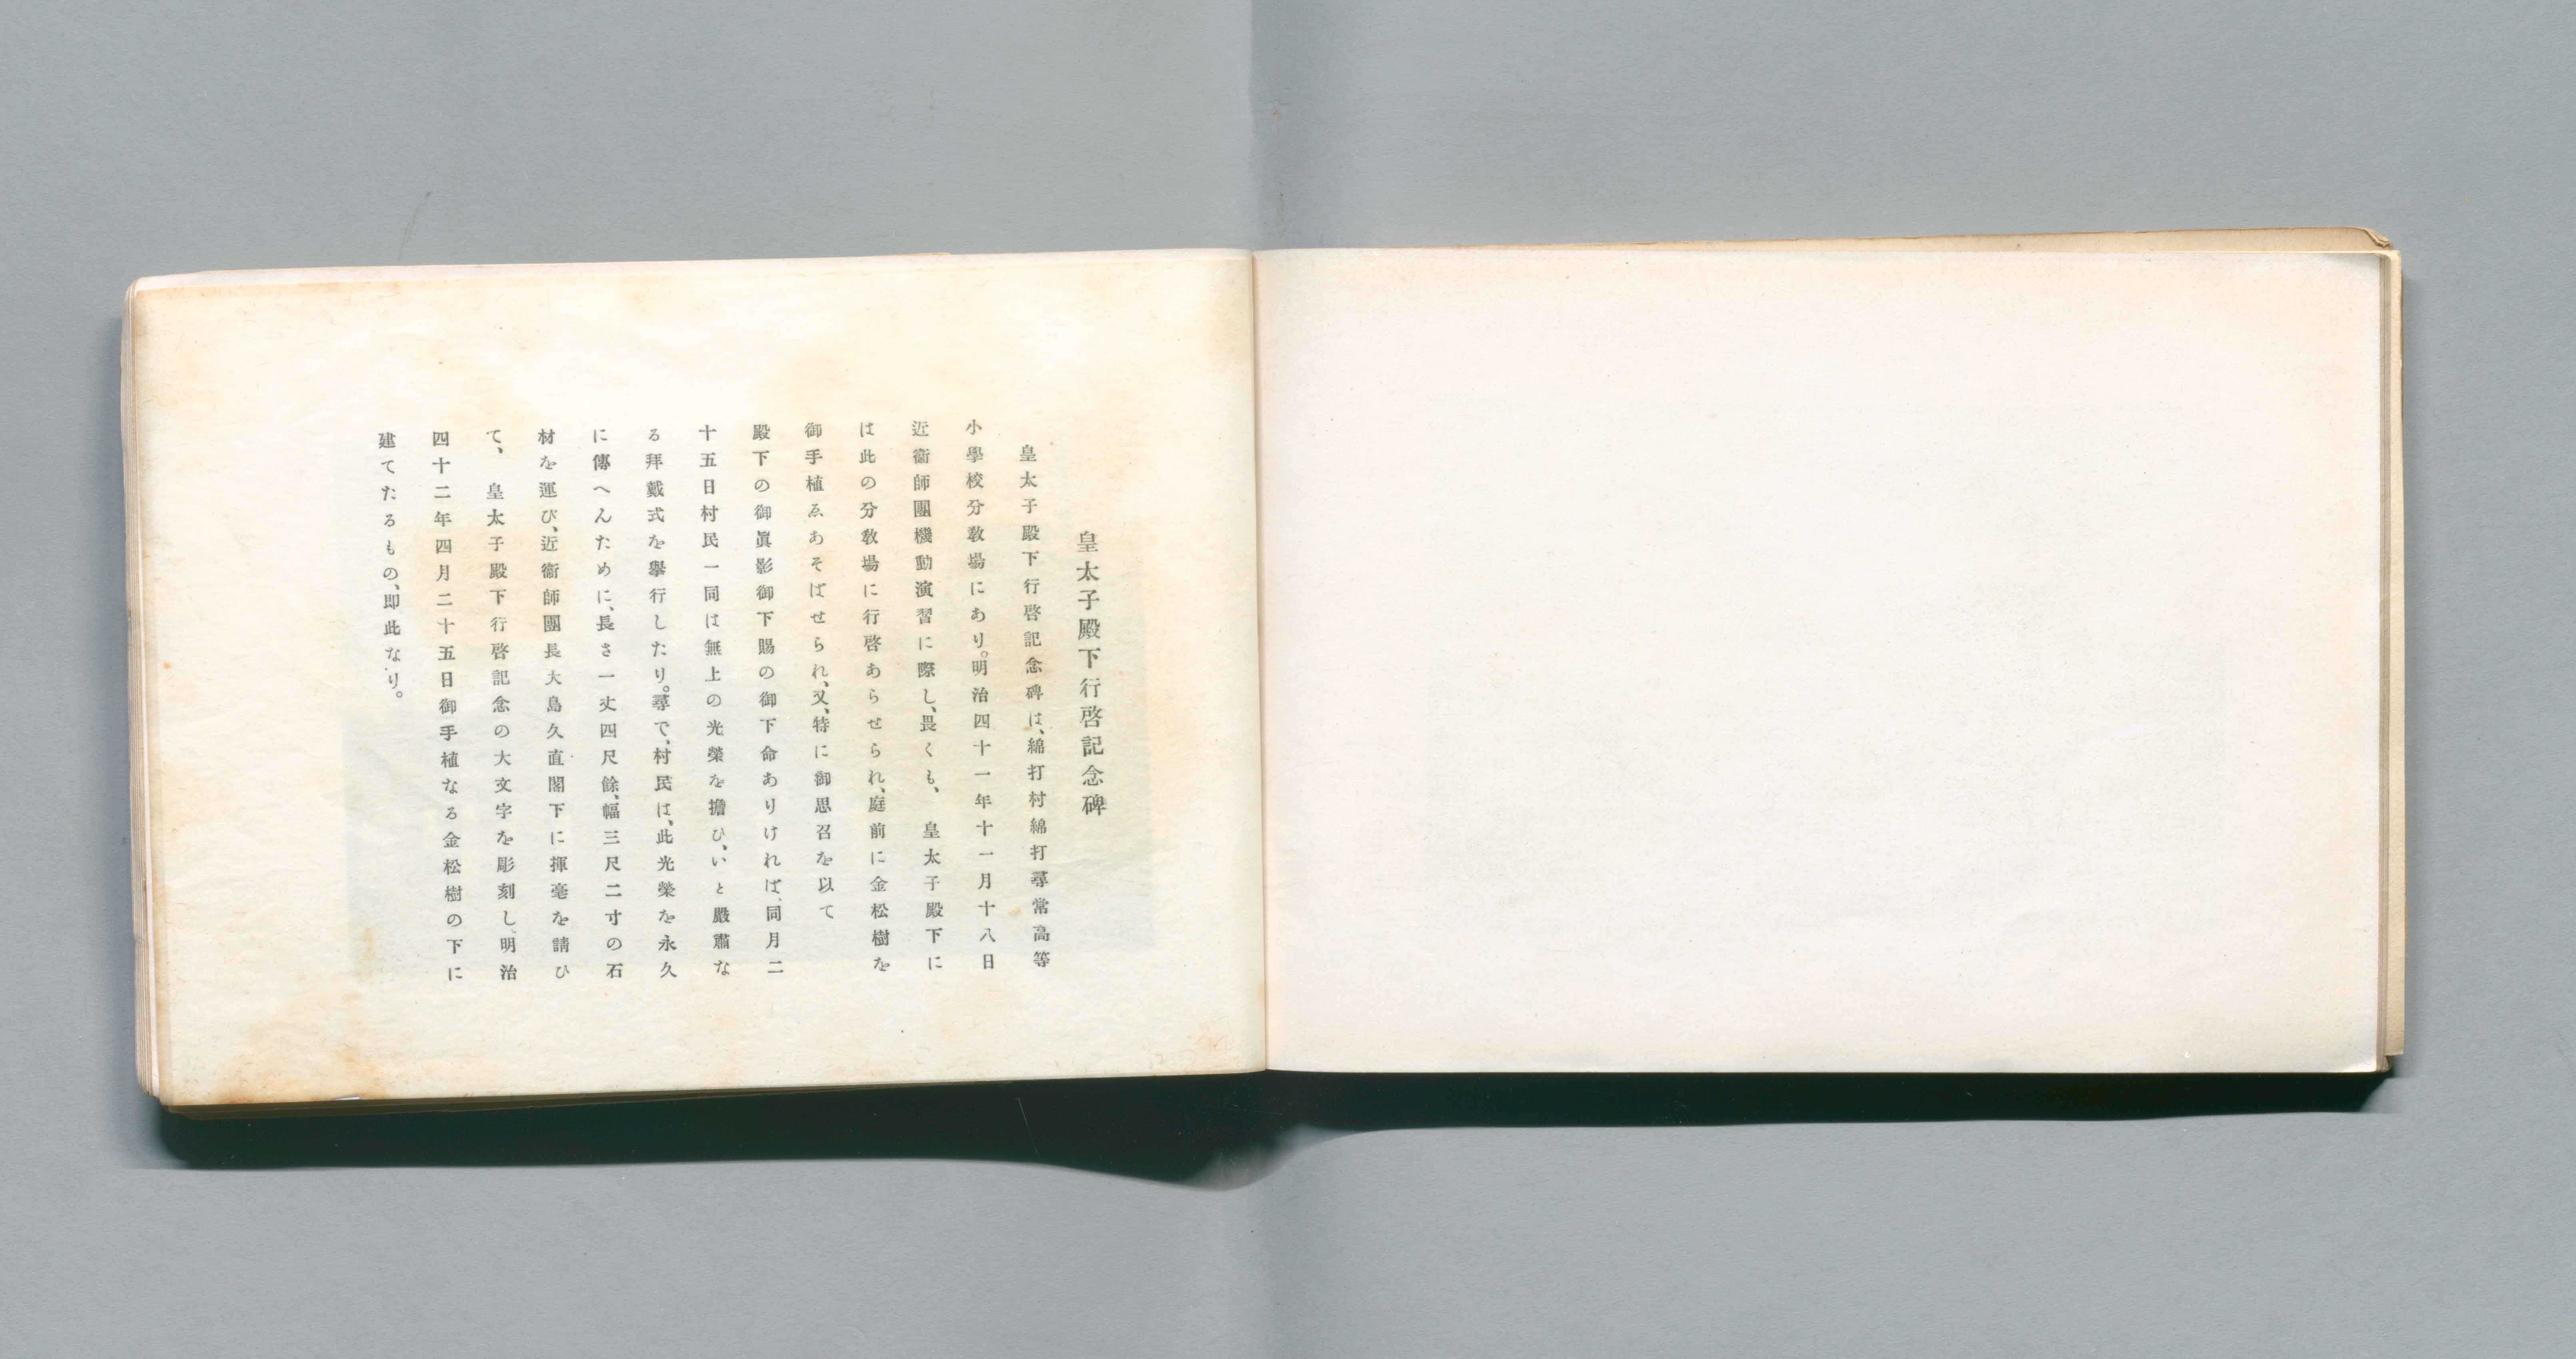 皇太子殿下行啓記念碑
皇太子殿下行啓記念碑は、綿打村綿打尋常高等
小學校分敎場にあり。明治四十一年十一月十八日
近衞師團機動演習に際し、畏くも、　皇太子殿下に
は此の分敎場に行啓あらせられ、庭前に金松樹を
御手植ゑあそばせられ、又、特に御思召を以て
殿下の御眞影御下賜の御下命ありければ、同月二
十五日村民一同は無上の光榮を擔ひ、いと嚴肅な
る拜戴式を擧行したり。尋で、村民は、此光榮を永久
に傳へんために、長さ一丈四尺餘、幅三尺二寸の石
材を運び、近衞師團長大島久直閣下に揮毫を請ひ
て、　皇太子殿下行啓記念の大文字を彫刻し、明治
四十二年四月二十五日御手植なる金松樹の下に
建てたるもの、即此なり。